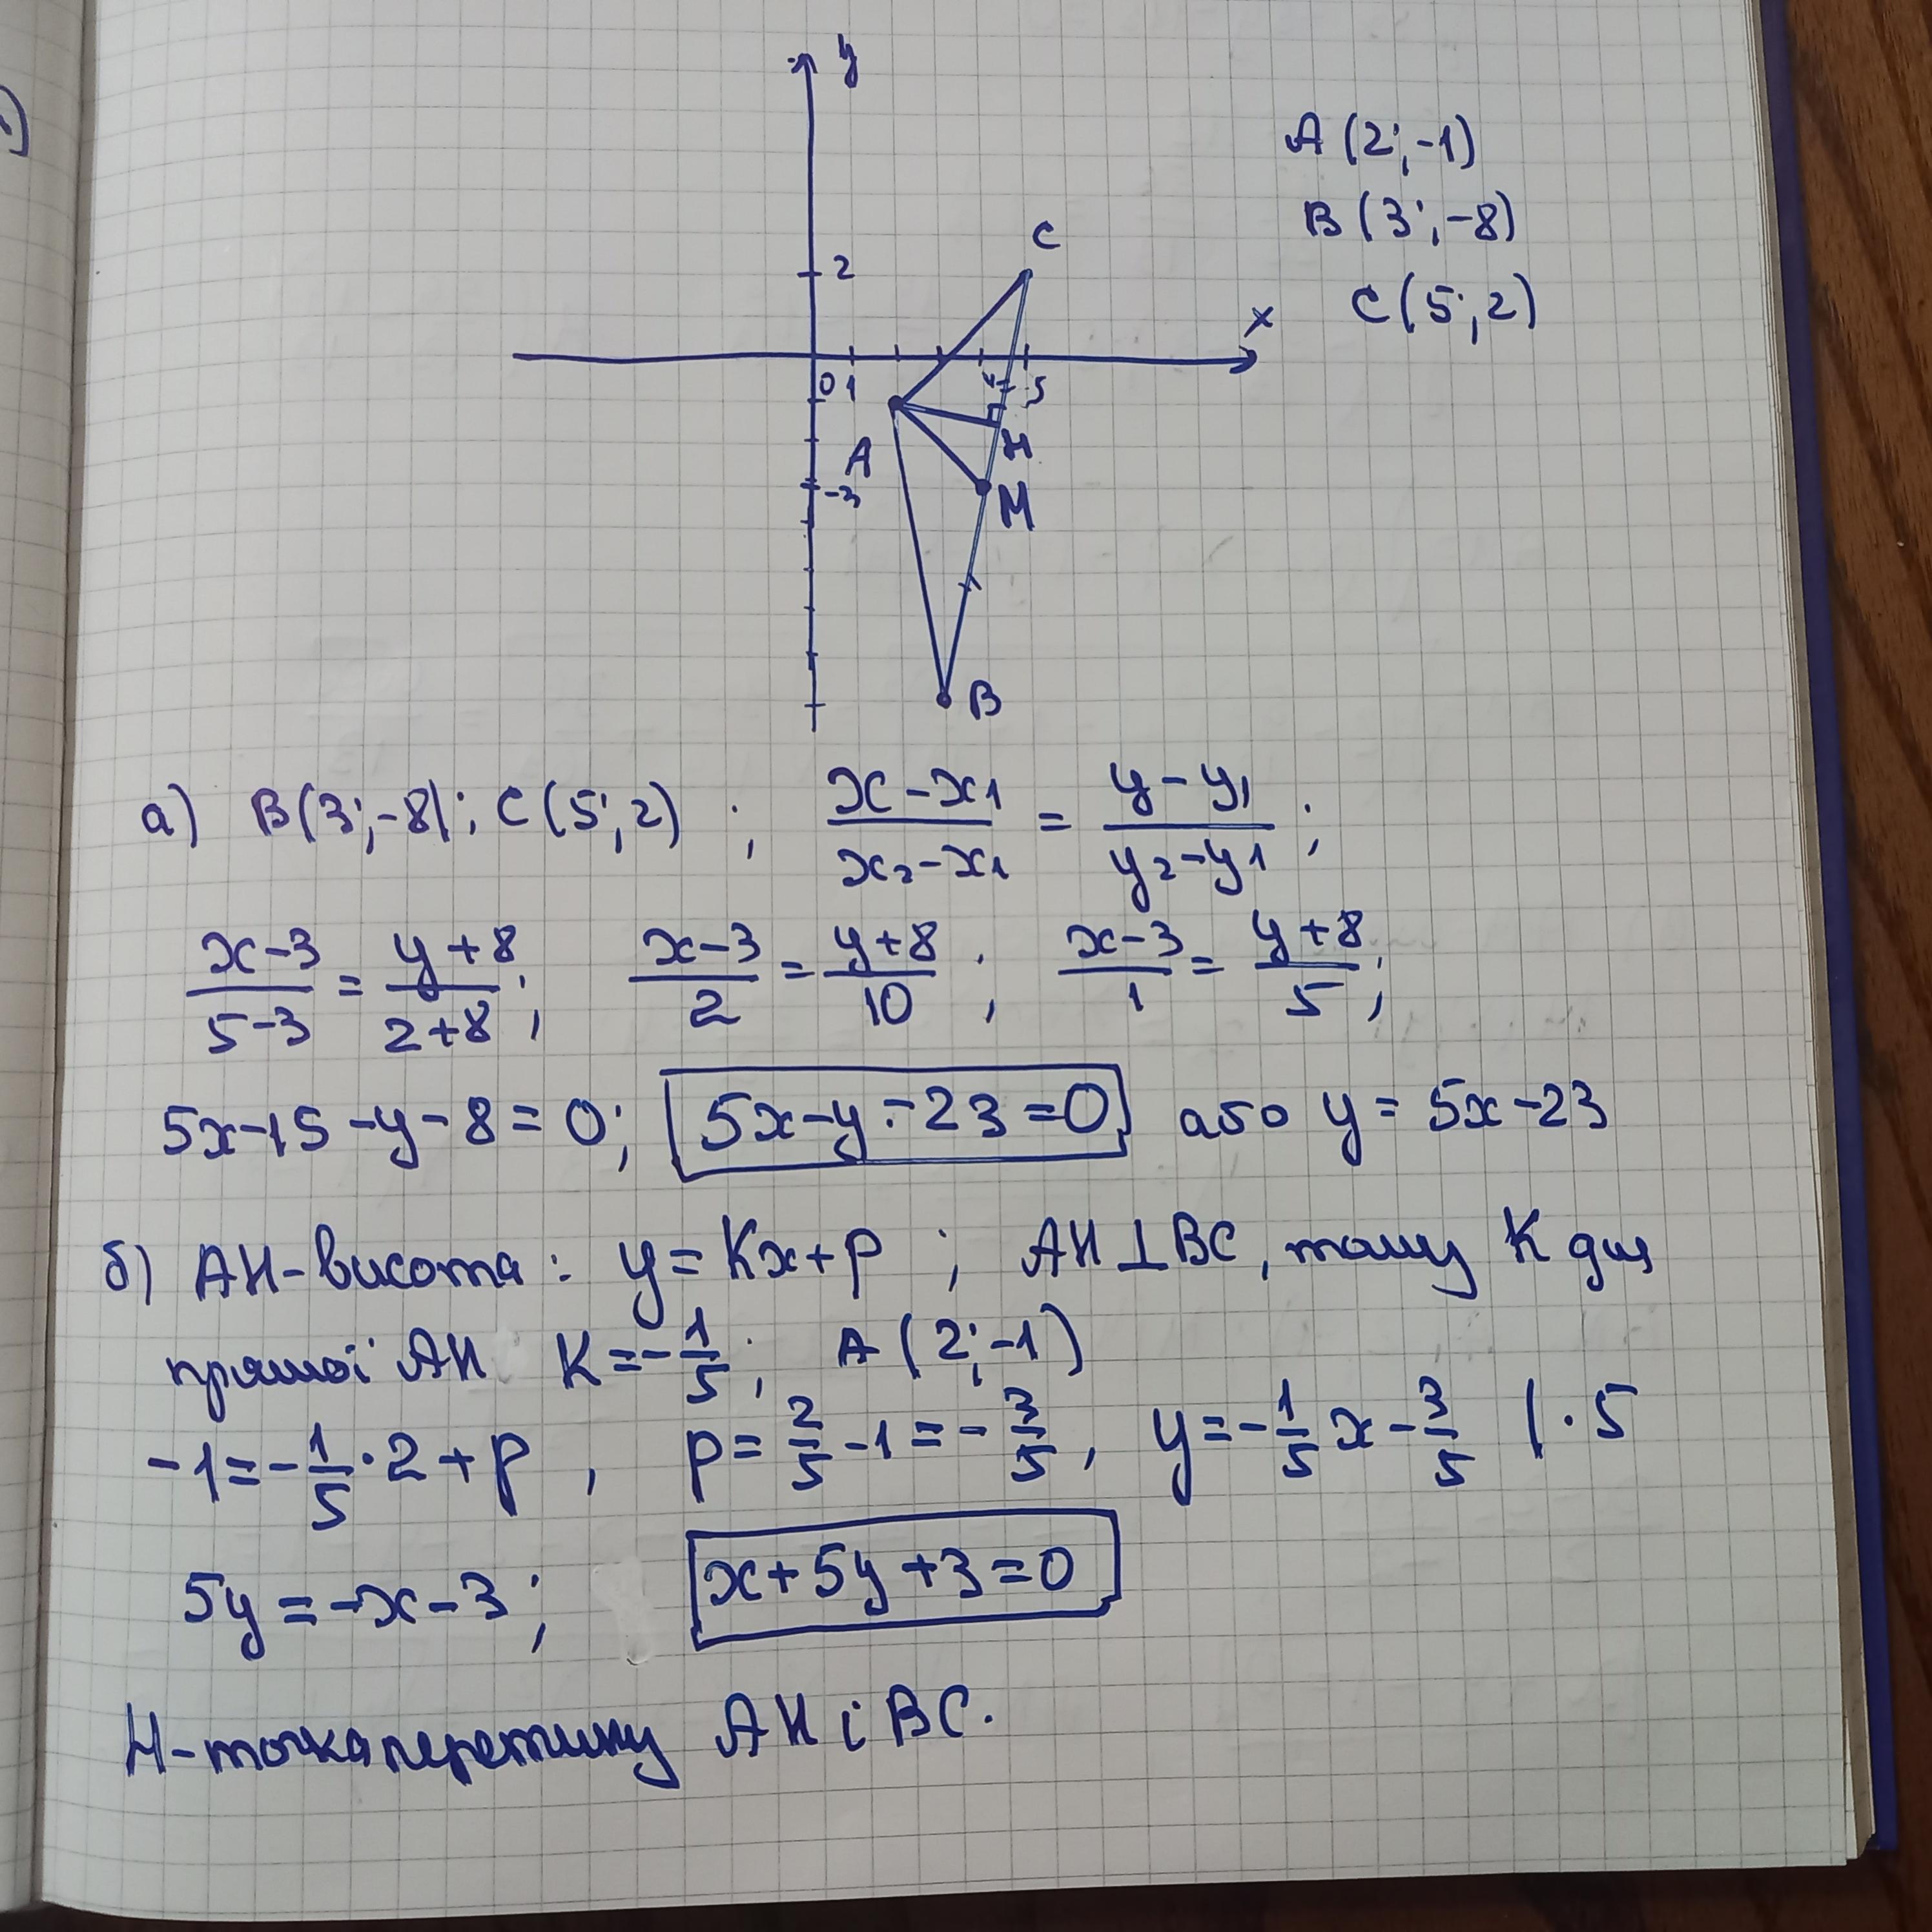 y
A (2; -1)
B (3; -8)
C (5; 2)
C
2
x
0 1 4 5
A
H
-3
M
B
а) B(3; -8); C(5; 2) ; (x - x1)/(x2 - x1) = (y - y1)/(y2 - y1) ;
(x-3)/(5-3) = (y+8)/(2+8) ; (x-3)/2 = (y+8)/10 ; (x-3)/1 = (y+8)/5 ;
5x-15-y-8=0; 5x-y-23=0 або y = 5x-23
б) AH-висота: y = Kx+p ; AH⊥BC, тому K для
прямої AH K=-1/5 ; A (2; -1)
-1=-1/5·2+p , p= 2/5 -1 = -3/5 , y=-1/5 x - 3/5 | · 5
5y = -x-3 ; x+5y+3=0
H-точка перетину AH і BC.